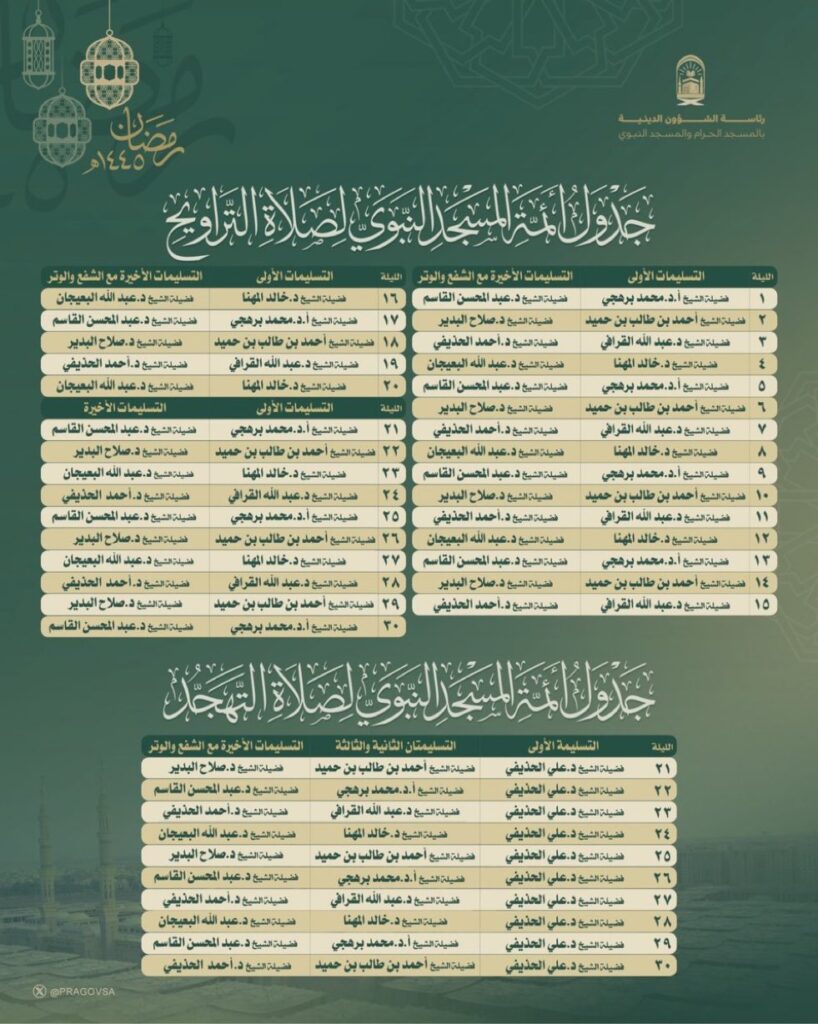 رمضان
١٤٤٥هـ
رئاسة الشؤون الدينية
بالمسجد الحرام والمسجد النبوي
جَدْوَلُ أَئمَّةِ المَسْجِدِ النَّبَوِيِّ لِصَلَاةِ التَّرَاوِيحِ
الليلة التسليمات الأولى التسليمات الأخيرة مع الشفع والوتر
١ فضيلة الشيخ أ.د.محمد برهجي فضيلة الشيخ د.عبد المحسن القاسم
٢ فضيلة الشيخ أحمد بن طالب بن حميد فضيلة الشيخ د.صلاح البدير
٣ فضيلة الشيخ د.عبد الله القرافي فضيلة الشيخ د.أحمد الحذيفي
٤ فضيلة الشيخ د.خالد المهنا فضيلة الشيخ د.عبد الله البعيجان
٥ فضيلة الشيخ أ.د.محمد برهجي فضيلة الشيخ د.عبد المحسن القاسم
٦ فضيلة الشيخ أحمد بن طالب بن حميد فضيلة الشيخ د.صلاح البدير
٧ فضيلة الشيخ د.عبد الله القرافي فضيلة الشيخ د.أحمد الحذيفي
٨ فضيلة الشيخ د.خالد المهنا فضيلة الشيخ د.عبد الله البعيجان
٩ فضيلة الشيخ أ.د.محمد برهجي فضيلة الشيخ د.عبد المحسن القاسم
١٠ فضيلة الشيخ أحمد بن طالب بن حميد فضيلة الشيخ د.صلاح البدير
١١ فضيلة الشيخ د.عبد الله القرافي فضيلة الشيخ د.أحمد الحذيفي
١٢ فضيلة الشيخ د.خالد المهنا فضيلة الشيخ د.عبد الله البعيجان
١٣ فضيلة الشيخ أ.د.محمد برهجي فضيلة الشيخ د.عبد المحسن القاسم
١٤ فضيلة الشيخ أحمد بن طالب بن حميد فضيلة الشيخ د.صلاح البدير
١٥ فضيلة الشيخ د.عبد الله القرافي فضيلة الشيخ د.أحمد الحذيفي
الليلة التسليمات الأولى التسليمات الأخيرة مع الشفع والوتر
١٦ فضيلة الشيخ د.خالد المهنا فضيلة الشيخ د.عبد الله البعيجان
١٧ فضيلة الشيخ أ.د.محمد برهجي فضيلة الشيخ د.عبد المحسن القاسم
١٨ فضيلة الشيخ أحمد بن طالب بن حميد فضيلة الشيخ د.صلاح البدير
١٩ فضيلة الشيخ د.عبد الله القرافي فضيلة الشيخ د.أحمد الحذيفي
٢٠ فضيلة الشيخ د.خالد المهنا فضيلة الشيخ د.عبد الله البعيجان
الليلة التسليمات الأولى التسليمات الأخيرة
٢١ فضيلة الشيخ أ.د.محمد برهجي فضيلة الشيخ د.عبد المحسن القاسم
٢٢ فضيلة الشيخ أحمد بن طالب بن حميد فضيلة الشيخ د.صلاح البدير
٢٣ فضيلة الشيخ د.خالد المهنا فضيلة الشيخ د.عبد الله البعيجان
٢٤ فضيلة الشيخ د.عبد الله القرافي فضيلة الشيخ د.أحمد الحذيفي
٢٥ فضيلة الشيخ أ.د.محمد برهجي فضيلة الشيخ د.عبد المحسن القاسم
٢٦ فضيلة الشيخ أحمد بن طالب بن حميد فضيلة الشيخ د.صلاح البدير
٢٧ فضيلة الشيخ د.خالد المهنا فضيلة الشيخ د.عبد الله البعيجان
٢٨ فضيلة الشيخ د.عبد الله القرافي فضيلة الشيخ د.أحمد الحذيفي
٢٩ فضيلة الشيخ أحمد بن طالب بن حميد فضيلة الشيخ د.صلاح البدير
٣٠ فضيلة الشيخ أ.د.محمد برهجي فضيلة الشيخ د.عبد المحسن القاسم
جَدْوَلُ أَئمَّةِ المَسْجِدِ النَّبَوِيِّ لِصَلَاةِ التَّهَجُّدِ
الليلة التسليمة الأولى التسليمتان الثانية والثالثة التسليمات الأخيرة مع الشفع والوتر
٢١ فضيلة الشيخ د.علي الحذيفي فضيلة الشيخ أحمد بن طالب بن حميد فضيلة الشيخ د.صلاح البدير
٢٢ فضيلة الشيخ د.علي الحذيفي فضيلة الشيخ أ.د.محمد برهجي فضيلة الشيخ د.عبد المحسن القاسم
٢٣ فضيلة الشيخ د.علي الحذيفي فضيلة الشيخ د.عبد الله القرافي فضيلة الشيخ د.أحمد الحذيفي
٢٤ فضيلة الشيخ د.علي الحذيفي فضيلة الشيخ د.خالد المهنا فضيلة الشيخ د.عبد الله البعيجان
٢٥ فضيلة الشيخ د.علي الحذيفي فضيلة الشيخ أحمد بن طالب بن حميد فضيلة الشيخ د.صلاح البدير
٢٦ فضيلة الشيخ د.علي الحذيفي فضيلة الشيخ أ.د.محمد برهجي فضيلة الشيخ د.عبد المحسن القاسم
٢٧ فضيلة الشيخ د.علي الحذيفي فضيلة الشيخ د.عبد الله القرافي فضيلة الشيخ د.أحمد الحذيفي
٢٨ فضيلة الشيخ د.علي الحذيفي فضيلة الشيخ د.خالد المهنا فضيلة الشيخ د.عبد الله البعيجان
٢٩ فضيلة الشيخ د.علي الحذيفي فضيلة الشيخ أ.د.محمد برهجي فضيلة الشيخ د.عبد المحسن القاسم
٣٠ فضيلة الشيخ د.علي الحذيفي فضيلة الشيخ أحمد بن طالب بن حميد فضيلة الشيخ د.أحمد الحذيفي
@PRAGOVSA